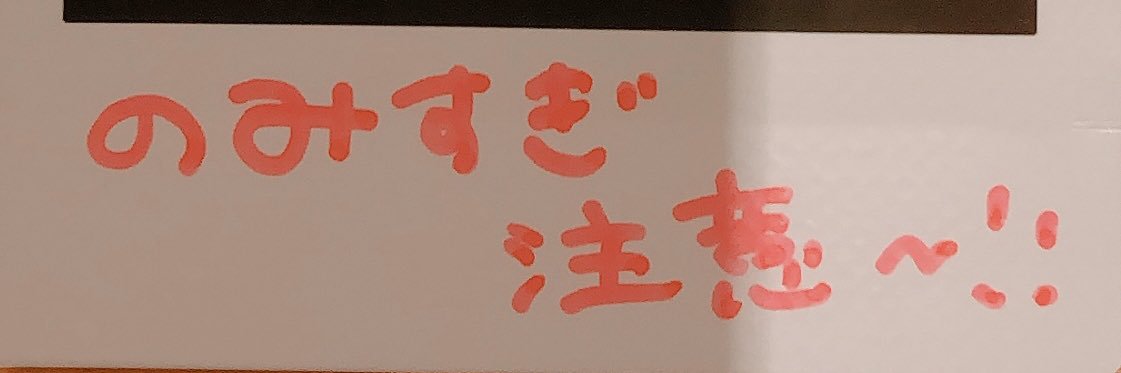 のみすぎ
注意～!!